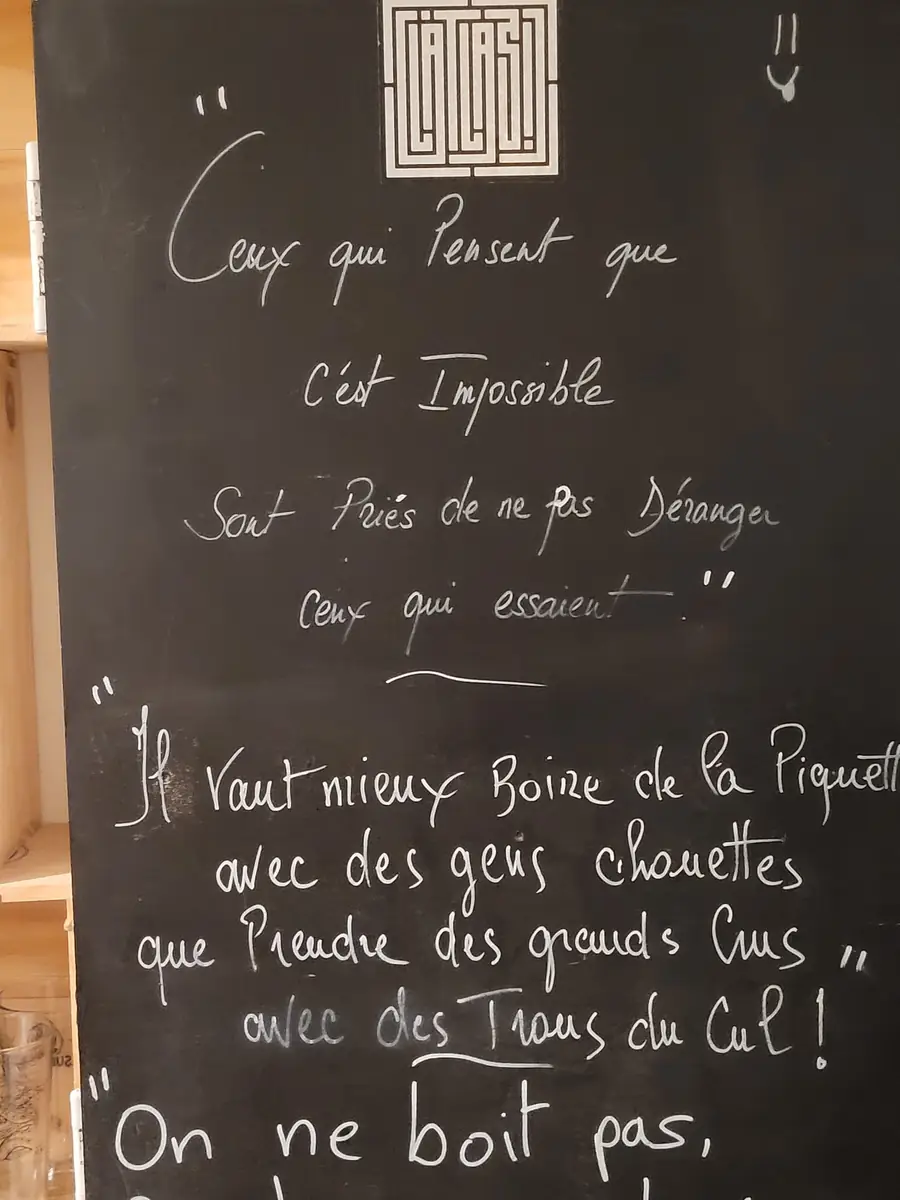 L'ATLAS!
"
Ceux qui Pensent que
c'est Impossible
Sont Priés de ne pas Déranger
ceux qui essaient."
"
Il vaut mieux Boire de la Piquett
avec des gens chouettes
que Prendre des grands Crus "
avec des Trous du Cul !
"On ne boit pas,